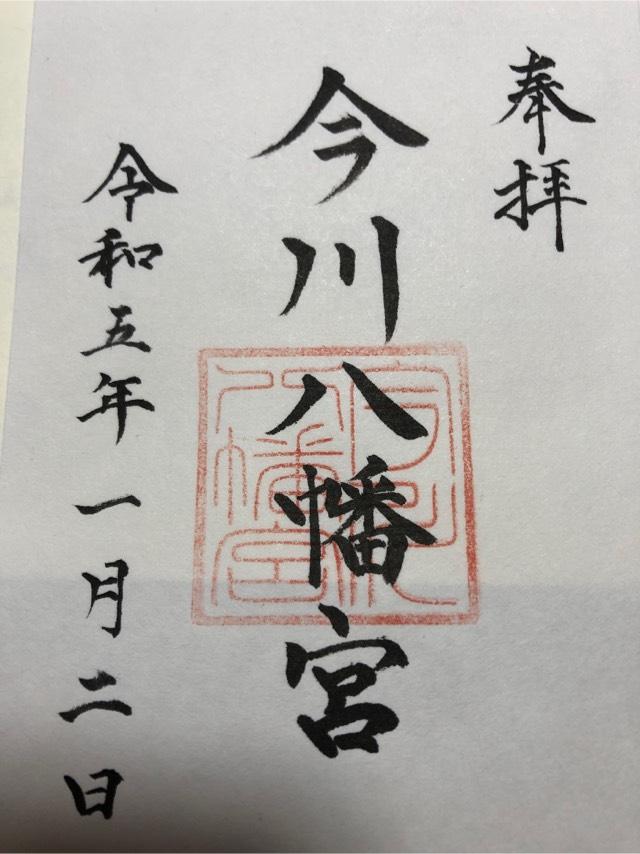 奉拝
今川八幡宮
令和五年一月二日